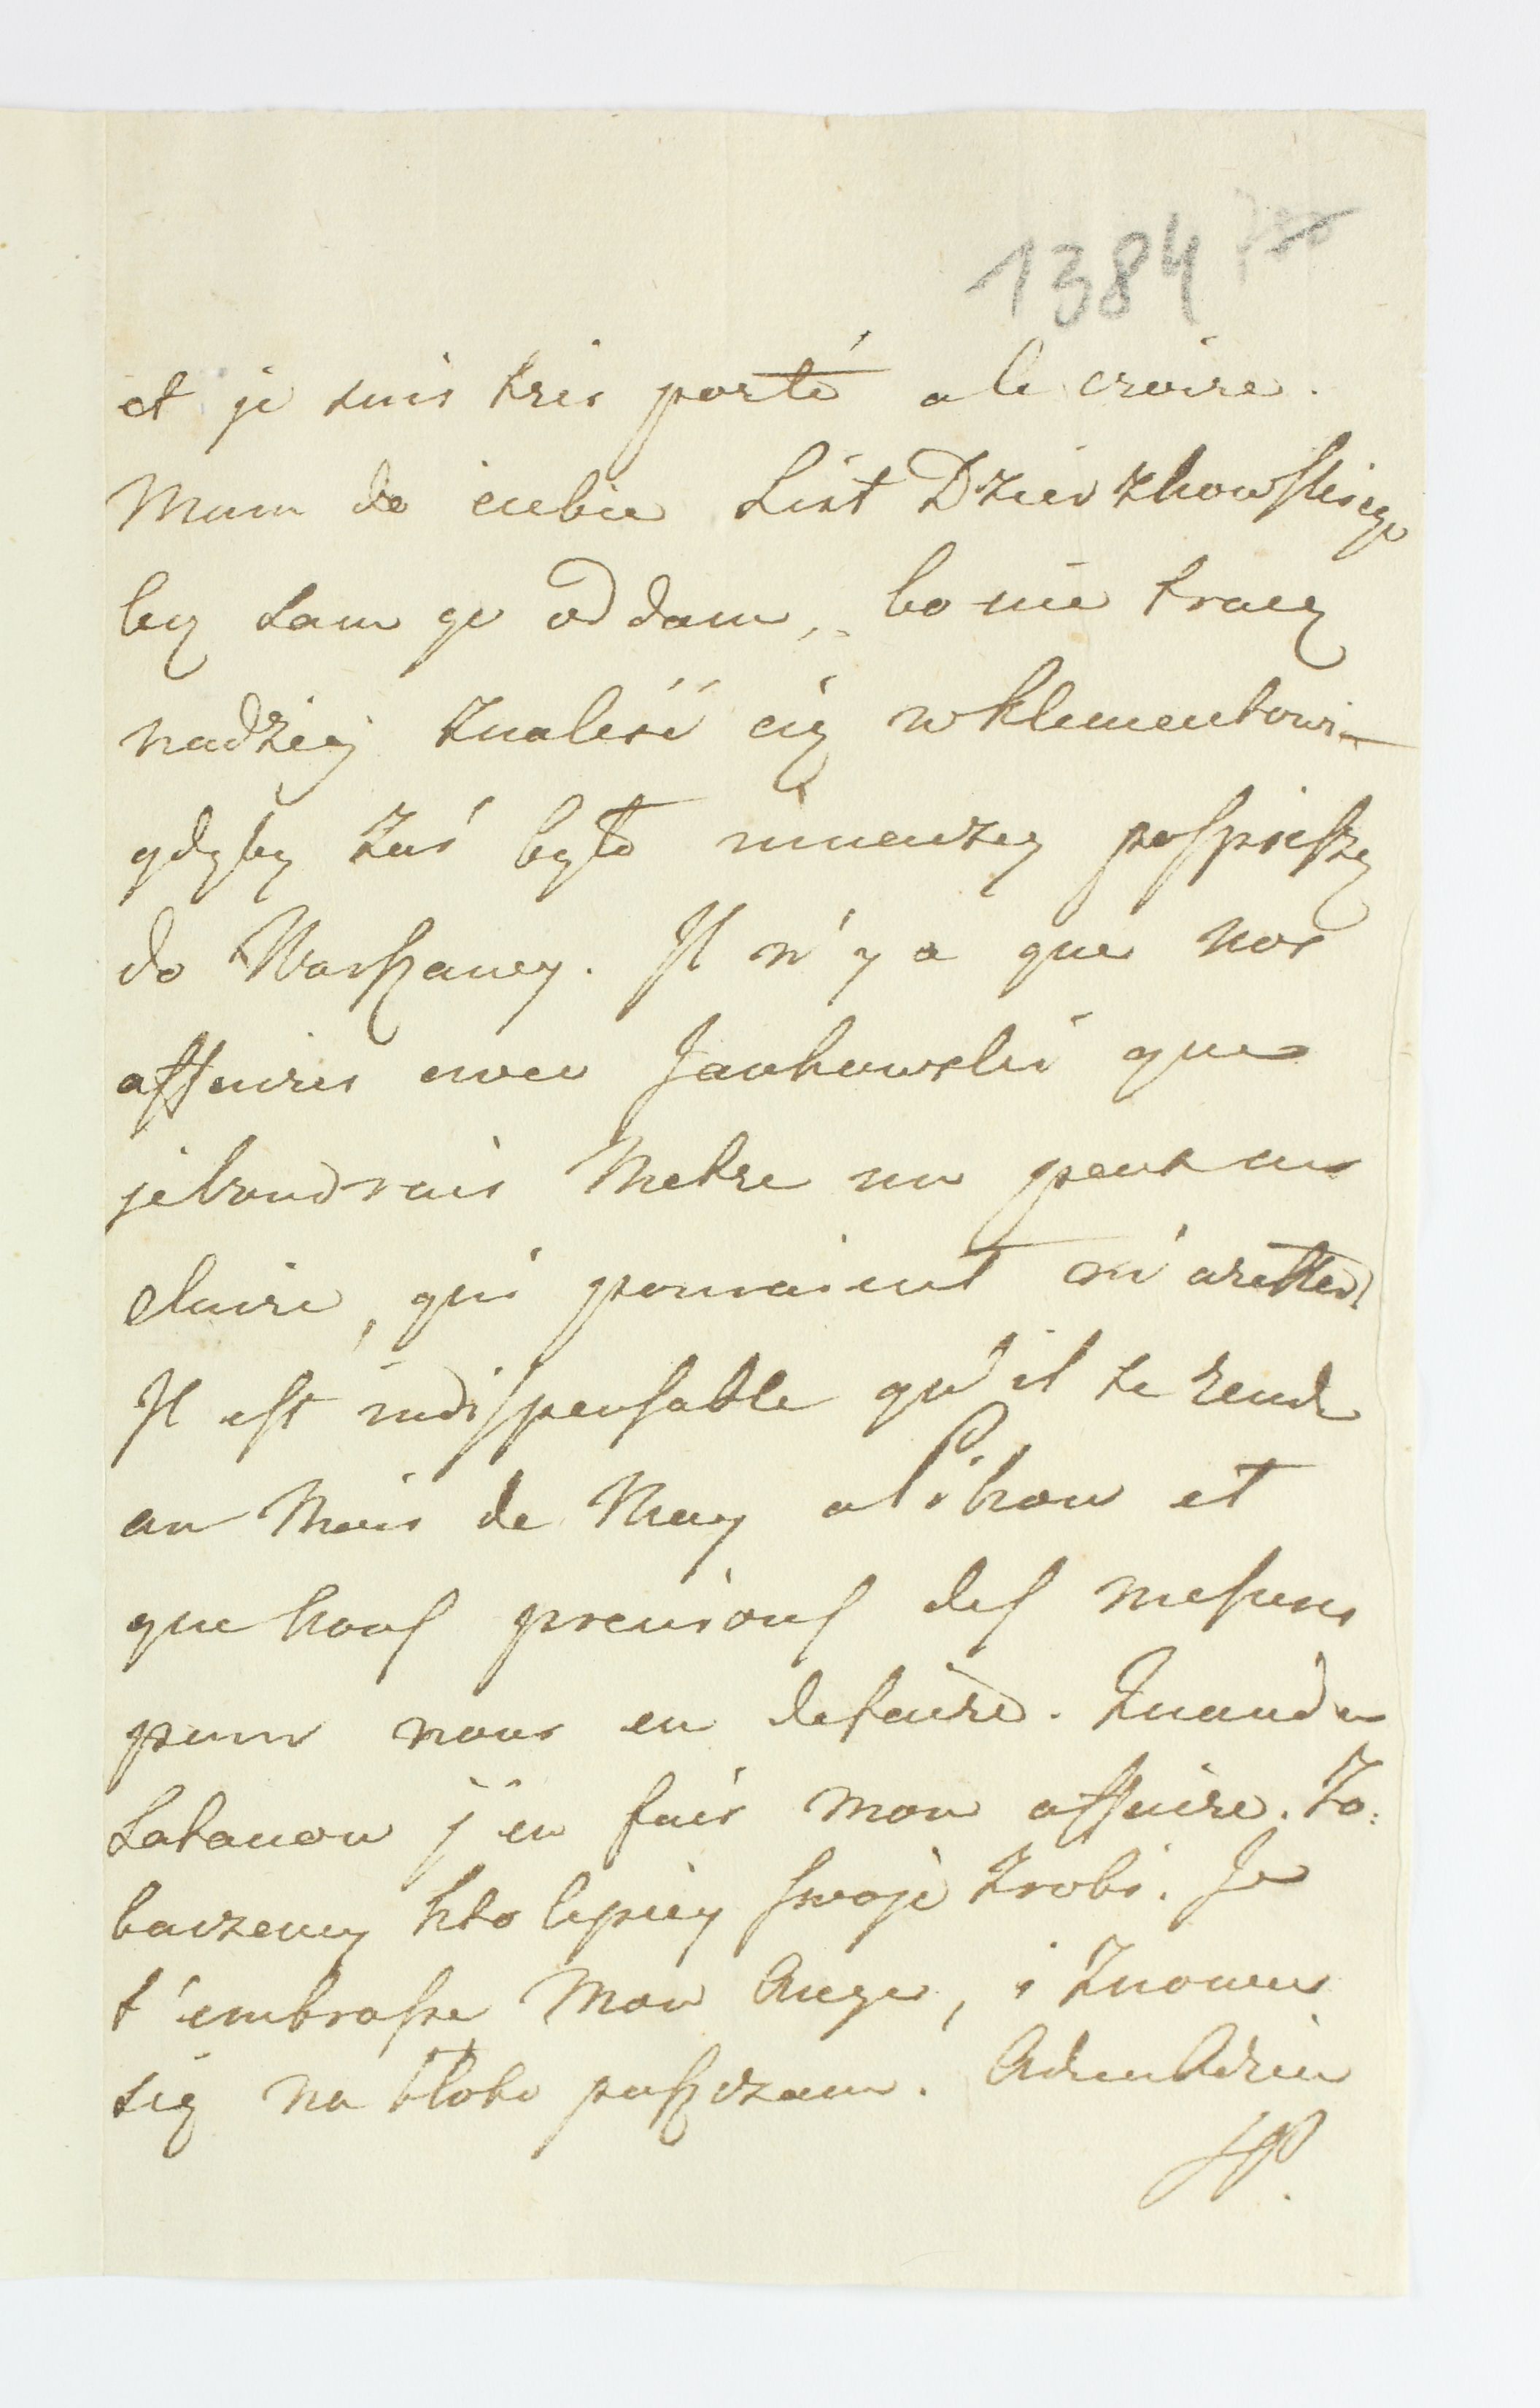 1384
et je suis tres porté a le croire.
Mam do ciebie List Dzierzkowskiego
lecz sam go oddam, bo nie tracę
nadziej znaleść cię w Klementowi-
gdyby zaś było inaczey pospieszę
do Warszawy. Il n'y a que nos
affaires avec Jankowski que
je voudrais Metre un peut au
claire, qui pouraient m'aretter
Il est indispensable qu'il se rende
au Mois de May a l'ikow et
que nous prenions des mesures
pour nous en defaire. Quand a
Satanow j'en fais mon affaire. Zo:
baczemy kto lepiey swoje zrobi. Je
t'embrasse Mon Ange, i znowu
się na błoto puszczam. Adieu Adieu